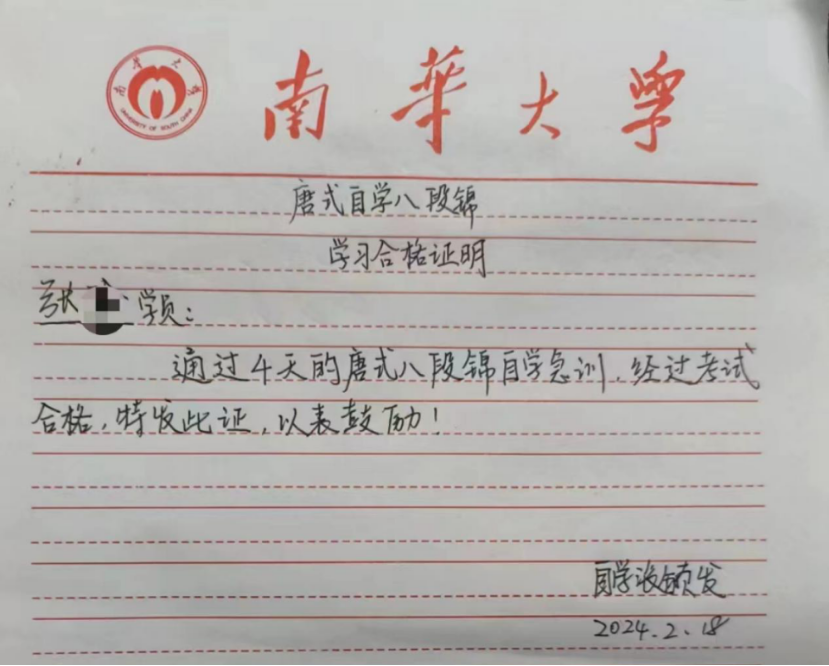 南华大学
UNIVERSITY OF SOUTH CHINA
南華大學
唐式自学八段锦
学习合格证明
张 学员：
通过4天的唐式八段锦自学急训，经过考试
合格，特发此证，以表鼓励！
自学没颁发
2024.2.18